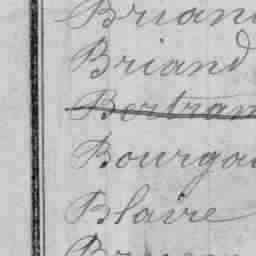 Briand
Briand
Bertram
Bourgo
Blaire